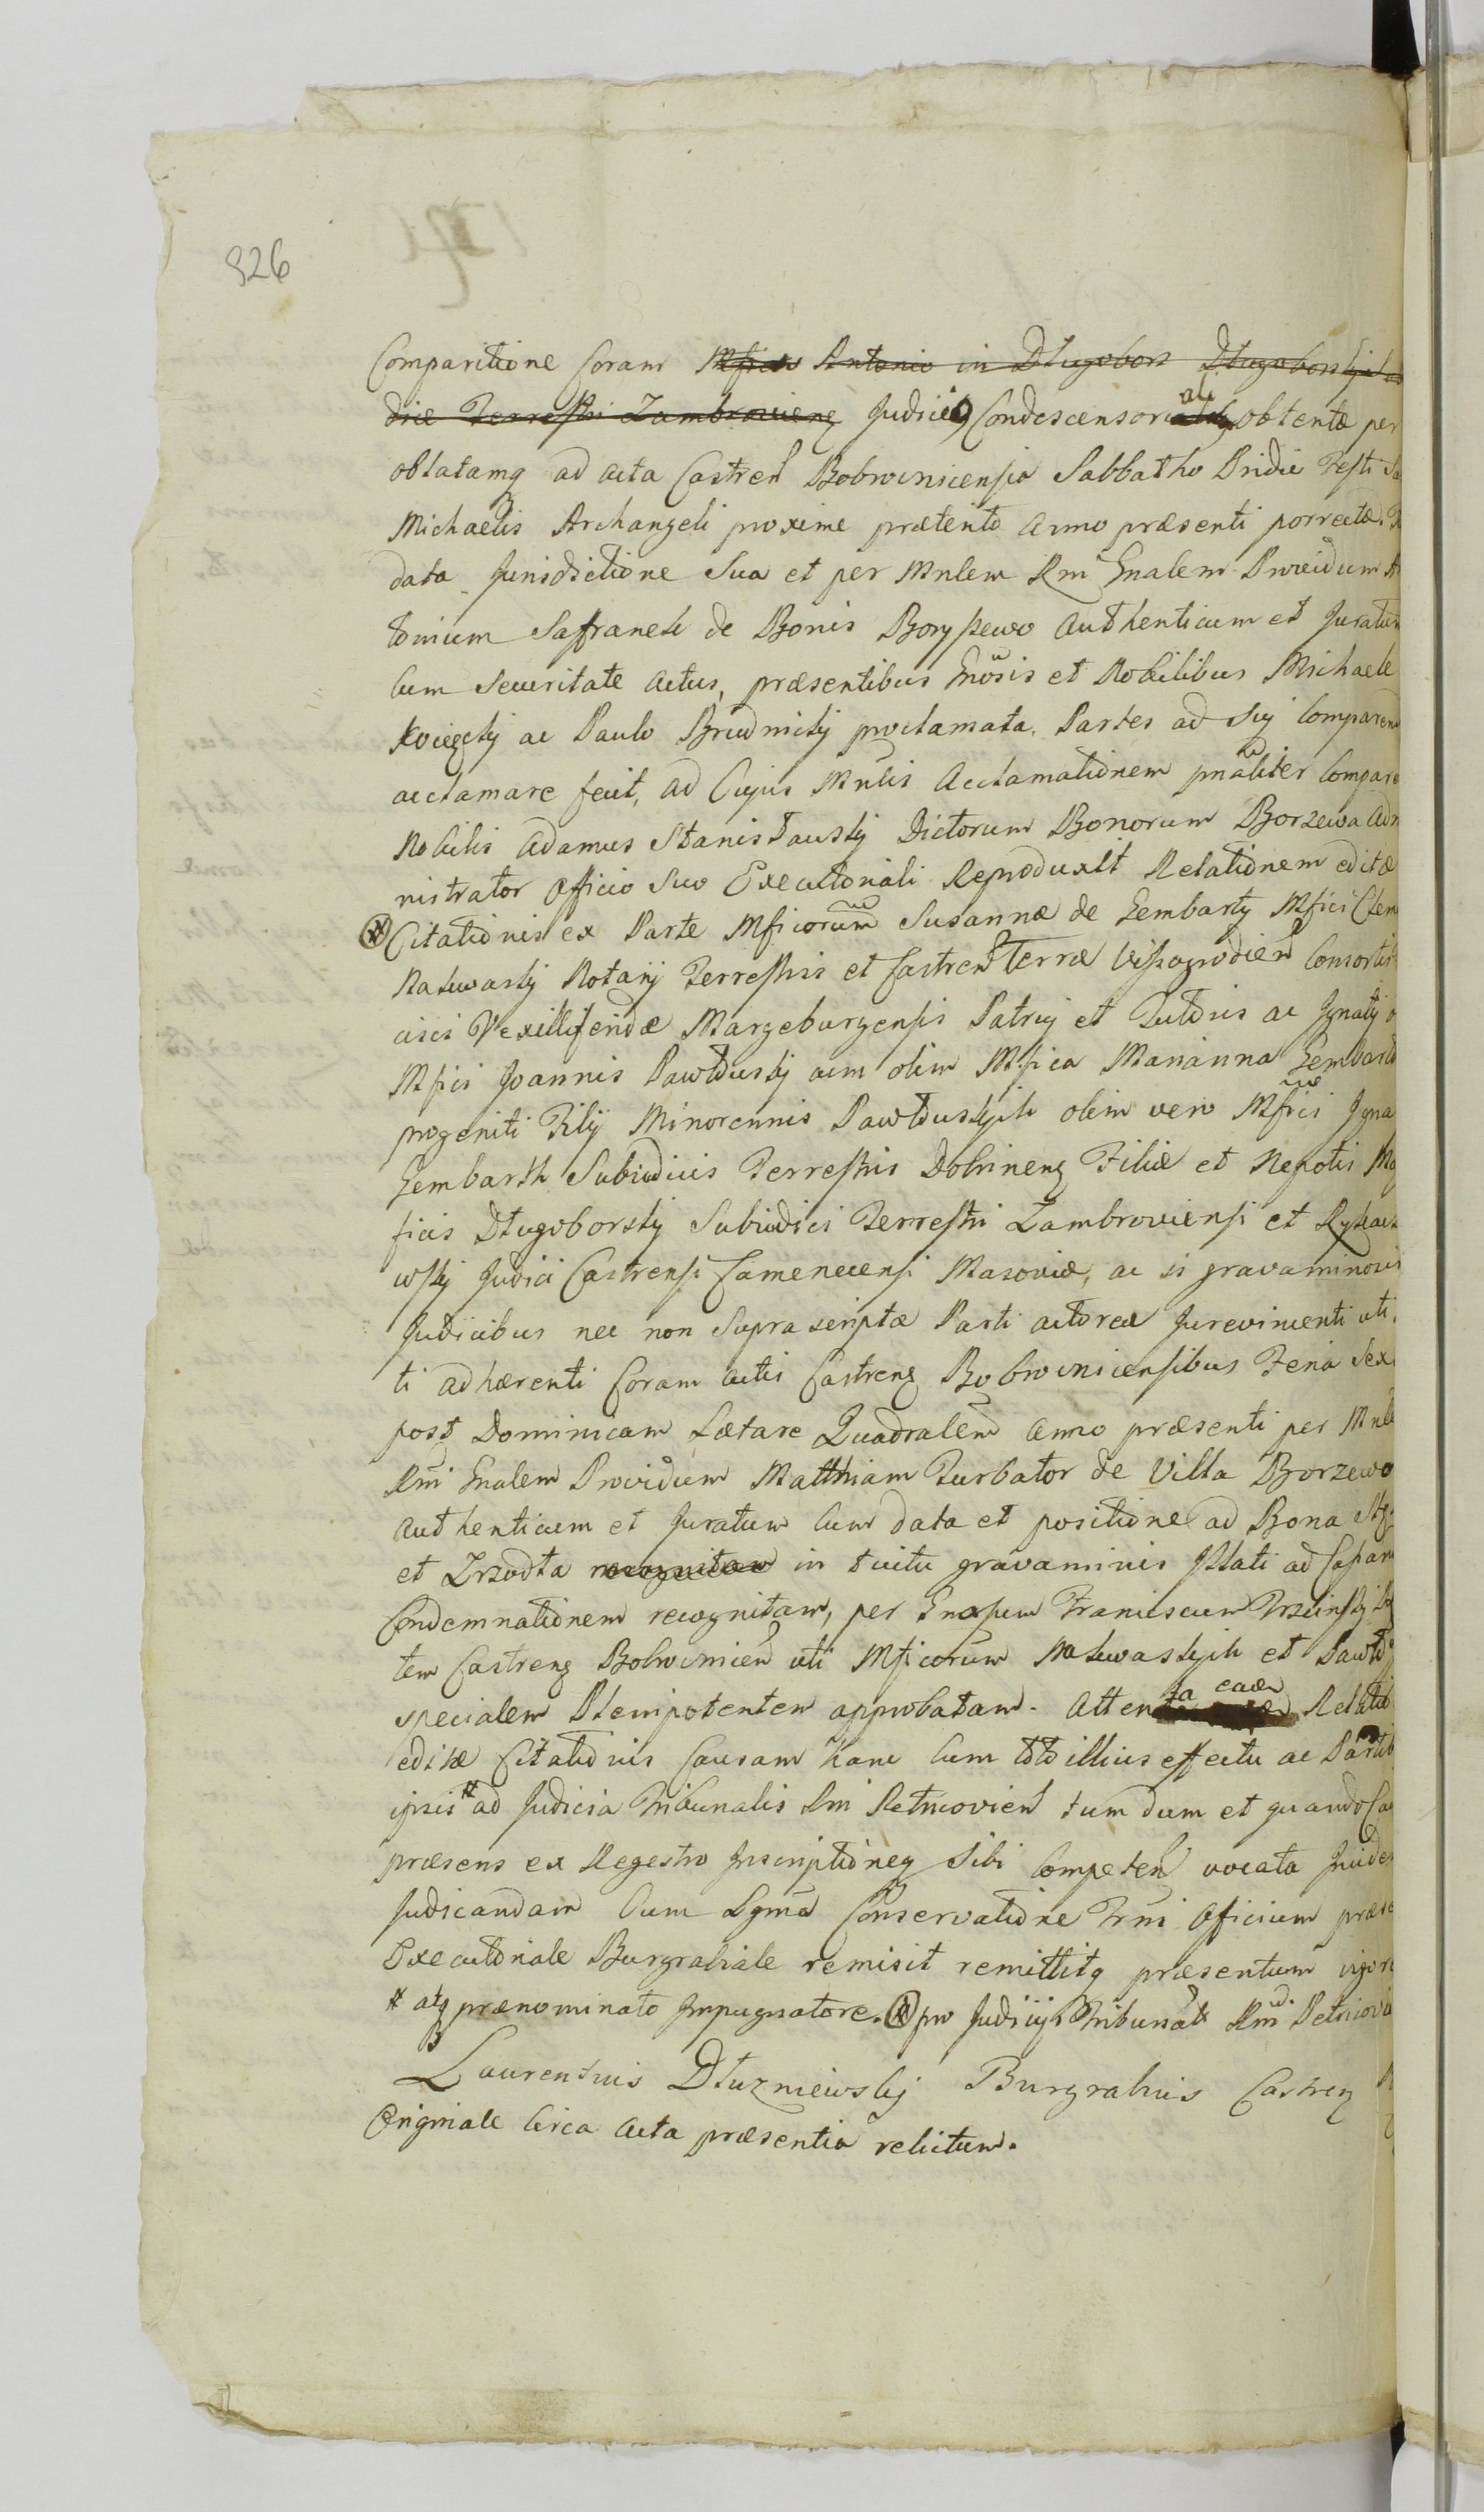 326
Comparitione Coram Mfico Antonio in Długobors Długoborskj Ju
dice Terrestri Zambroviens Judicio Condescensoriali obtentæ per
oblatamq ad acta Castren Bobrovnicensia Sabbatho Pridie Festi
Michaelis Archangeli proxime præterito Anno præsenti porrectæ
data Jurisdictione Sua et per Mnlem Rni Gnalem Providum
tonium Saffraneh de Bonis Boryszewo Authenticum et Juratum
Cum Securitate Actus, præsentibus Gnosis et Nobilibus Michaele
ac Paulo Brudnickj proclamata. Partes ad Sui Comparend
acclamare fecit, ad Cujus Mnlis Acclamationem pnaliter Compare
Nobilis Adamus Stanisławskj Dictorum Bonorum Borzewa Admi
nistrator Officio Suo Executoriali Reproduxit Relationem editæ
Citationis ex Parte Mficorum Susannæ de Gembarty Mfici Clem
Nakwaskj Notarij Terrestris et Castren Terræ Vissogrodien Consortis
cisci Vexilliferidæ Margeburgensis Patrui et Tutoris ac Ignatij
Mfici Joannis Pawłowskj cum olim Mfica Marianna Gembart
progeniti Filij Minorennis Pawłowskich olim vero Mfici Igna
Gembarth Subiudicis Terrestris Dobrinens Filiæ et Nepotis Ma
ficis Długoborskj Subiudici Terrestri Zambroviensi et
wskj Judici Castrensi Camenecensi Masoviæ, ac si gravaminosis
Judicibus nec non Suprascriptæ Parti actoreæ Jurevincenti uti
ti adhærenti Coram actis Castrens Bobrovnicensibus Feria Sex
post Dominicam Lætare Quadralem Anno præsenti per Mnle
Rni Gnalem Providum Matthiam Turbator de Villa Borzewo
Authenticum et Juratum Cum data et positione ad Bona
et Zrzodła recognitam in tuitu gravaminis Illati ad
Condemnationem recognitam, per Gnosum Franciscum
tem Castrens Bobrovnicen uti Mficorum Nakwaskich et Pawło
specialem Plenipotentem approbatam. Attenta eadem Relatio
editæ Citationis Causam hanc Cum toto illius effectu ac Partib
ipsis # ad Judicia Tribunalis Rni Petricovien tum dum et quando Ca
præsens ex Regestro Inscriptioneq Sibi Competen vocata Incider
Judicandam Cum Lgma Conservatione Trni Officium præse
Executoriale Burgrabiale remisit remittitq præsentium vigore
# atq prænominato Impugnatore. pro Judicijs Tribunal Rni Petricovien
Laurentius Dłuzniewskj Burgrabius Castren
Originale Circa Acta præsentia relictum.